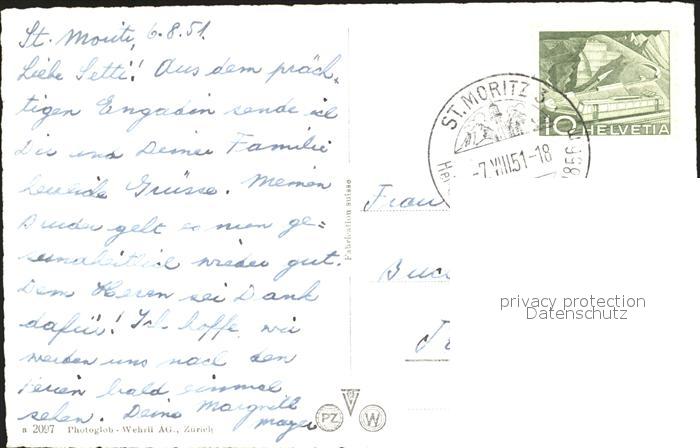 St. Moritz, 6.8.51.
Liebe Setti! Aus dem präch-
tigen Engadin sende ich
Dir und Deiner Familie
Grüsse. Meinem
Bruder geht es nun ge=
sundheitlich wieder gut.
Dem Herrn sei Dank
dafür! Ich hoffe, wir
werden uns nach den
Ferien bald einmal
sehen. Deine Margrit
Mayer
a 2097 Photoglob-Wehrli AG., Zürich
Fabrication suisse
PZ W
ST. MORITZ 3
-7.VIII.51-18
1856 m
10 HELVETIA
Frau
privacy protection
Datenschutz